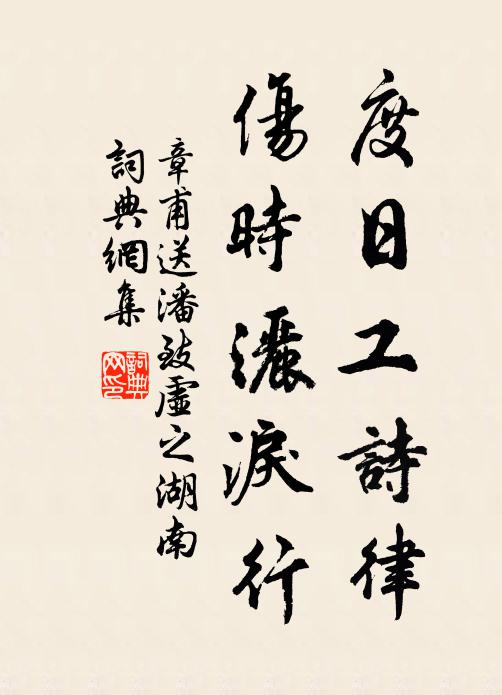 度日工詩律
傷時灑淚行
章甫送潘致虛之湖南
詞典網集
詞典网印